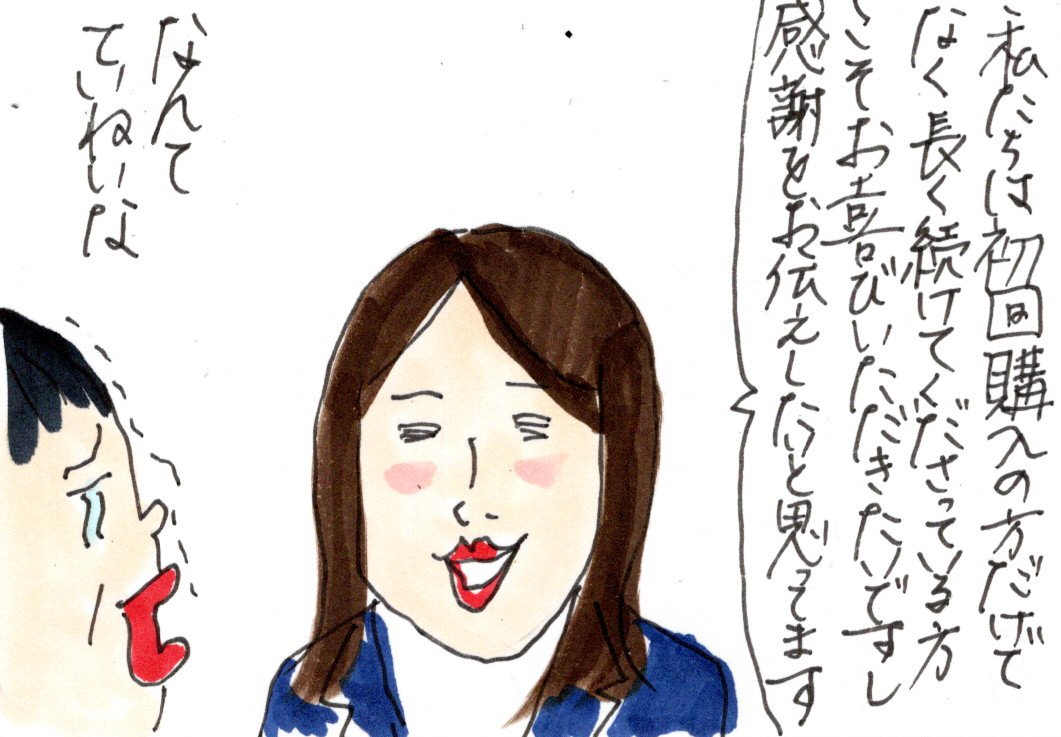 私たちは初回購入の方だけで
なく長く続けてくださっている方
こそお喜びいただきたいですし
感謝をお伝えしたいと思ってます
なんて
ていねいな